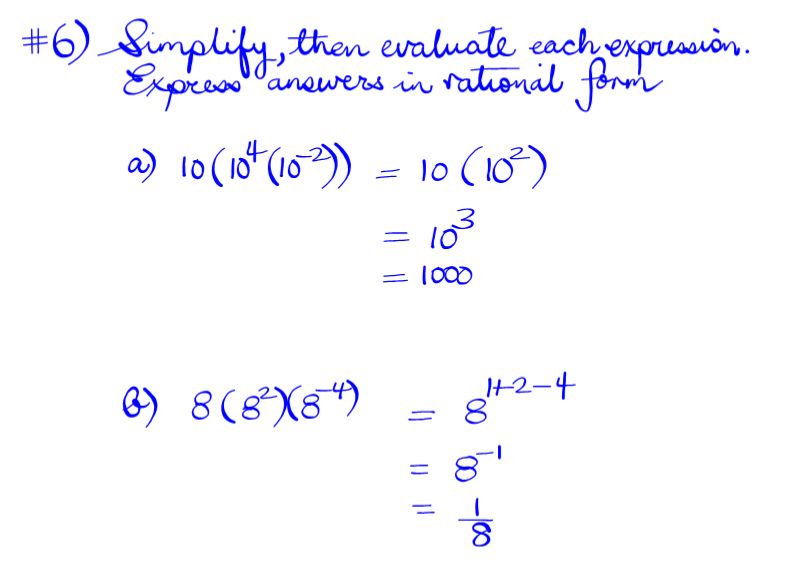 #6) Simplify, then evaluate each expression.
Express answers in rational form
a) 10(10⁴(10⁻²)) = 10(10²)
= 10³
= 1000
b) 8(8²)(8⁻⁴) = 8¹⁺²⁻⁴
= 8⁻¹
= 1/8